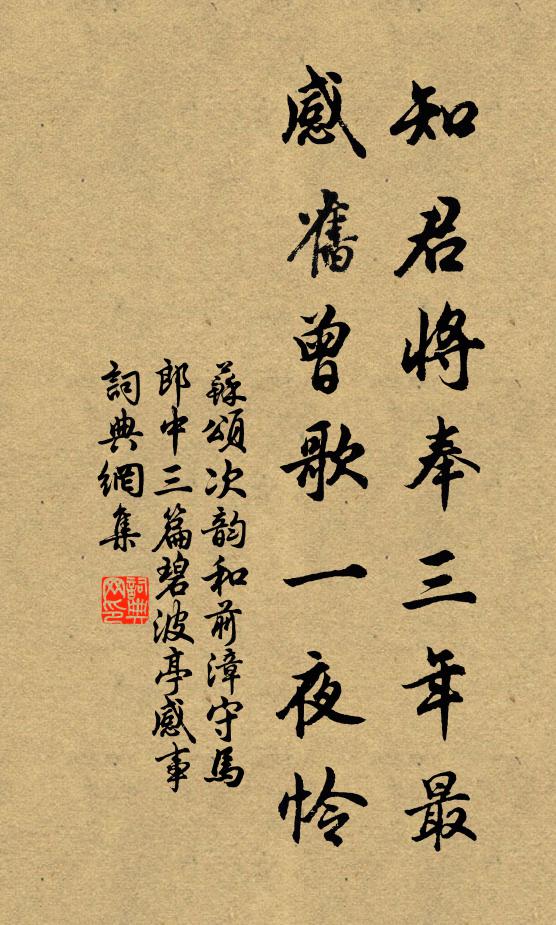 知君將奉三年最
感舊曾歌一夜怜
蘇頌次韵和前漳守馬
郎中三篇碧波亭感事
詞典網集
詞典网印